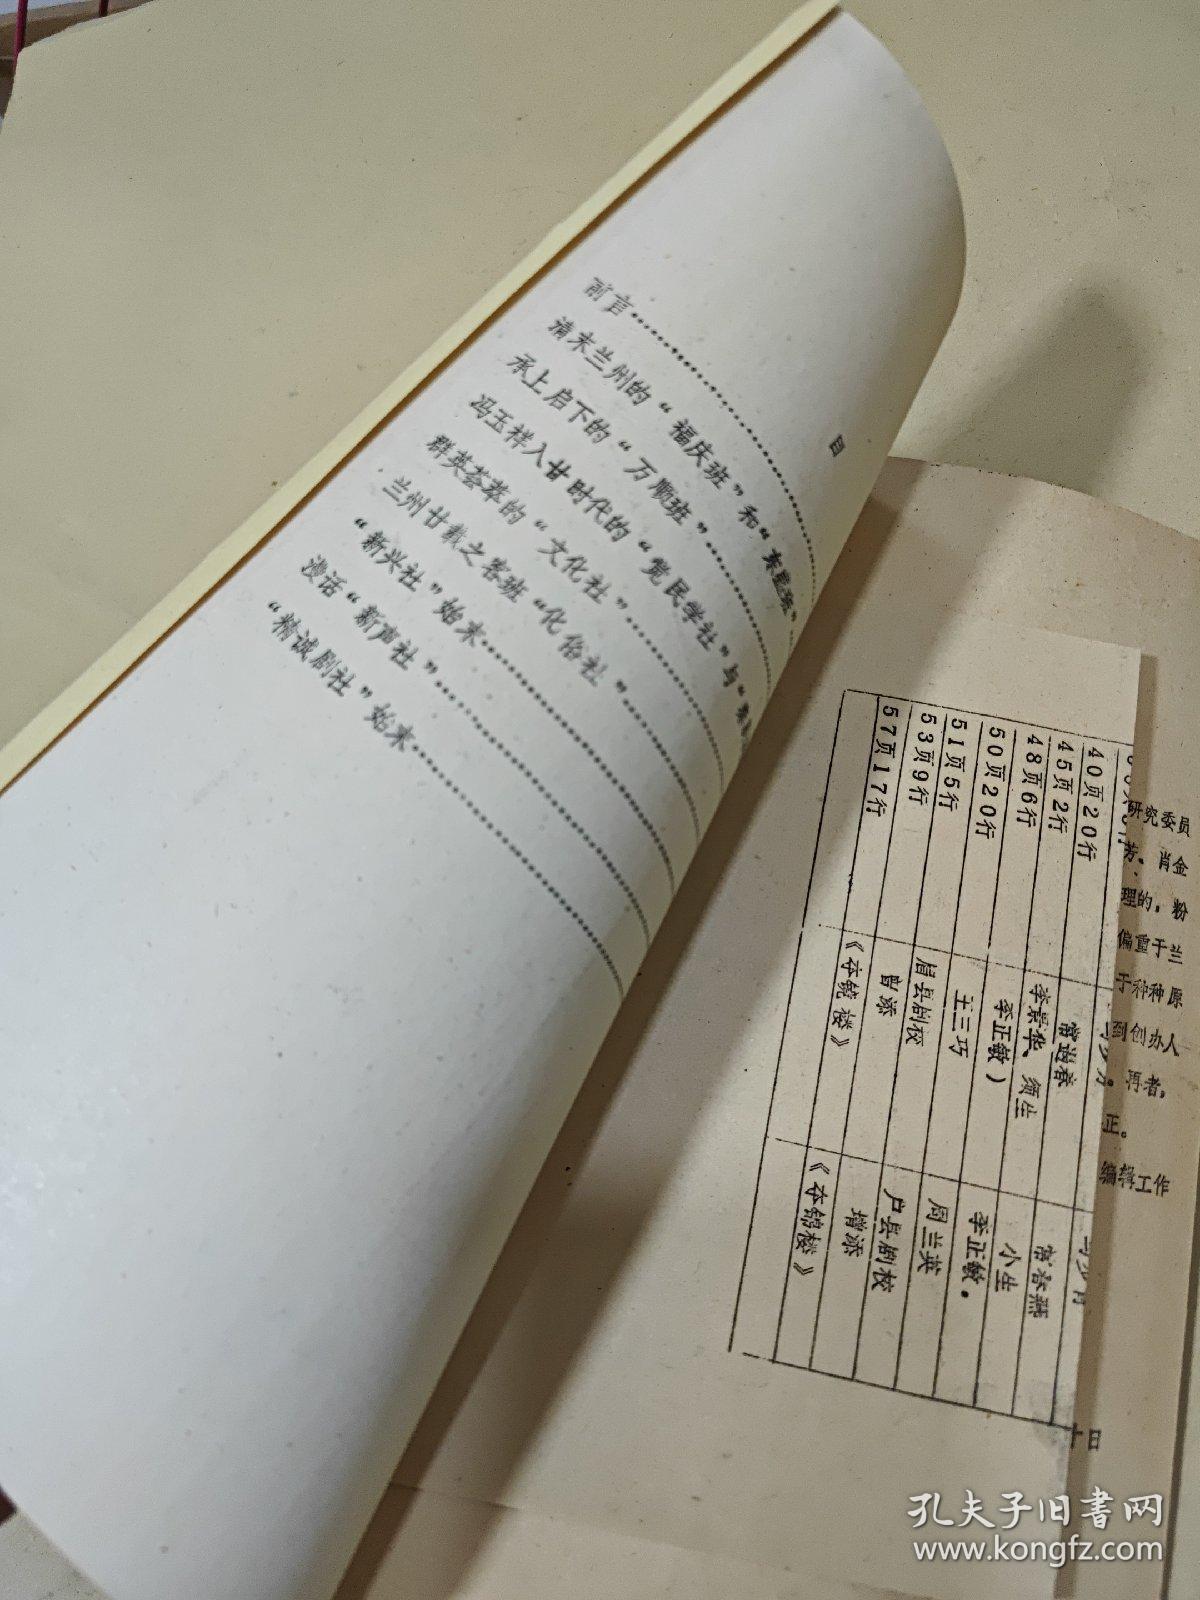 目
前言
清末兰州的“福庆班”和“东
承上启下的“万顺班”
冯玉祥入甘时代的“觉民学社”与“
群英荟萃的“文化社”
兰州廿载之客班“化俗社”
“新兴社”始末
漫话“新声社”
“精诚剧社”始末
40页20行
45页2行 常遇春 常春燕
48页6行 李景华、须生 小生
50页20行 李正敏） 李正敏。
51页5行 王三巧 周兰英
53页9行 眉县剧校 户县剧校
57页17行 曾添 增添
《夺镜楼》 《夺锦楼》
研究委员
芳。肖金
理的，粉
偏重于兰
于种种原
到创办人
再者，
正。
编辑工作
孔夫子旧書网
www.kongfz.com